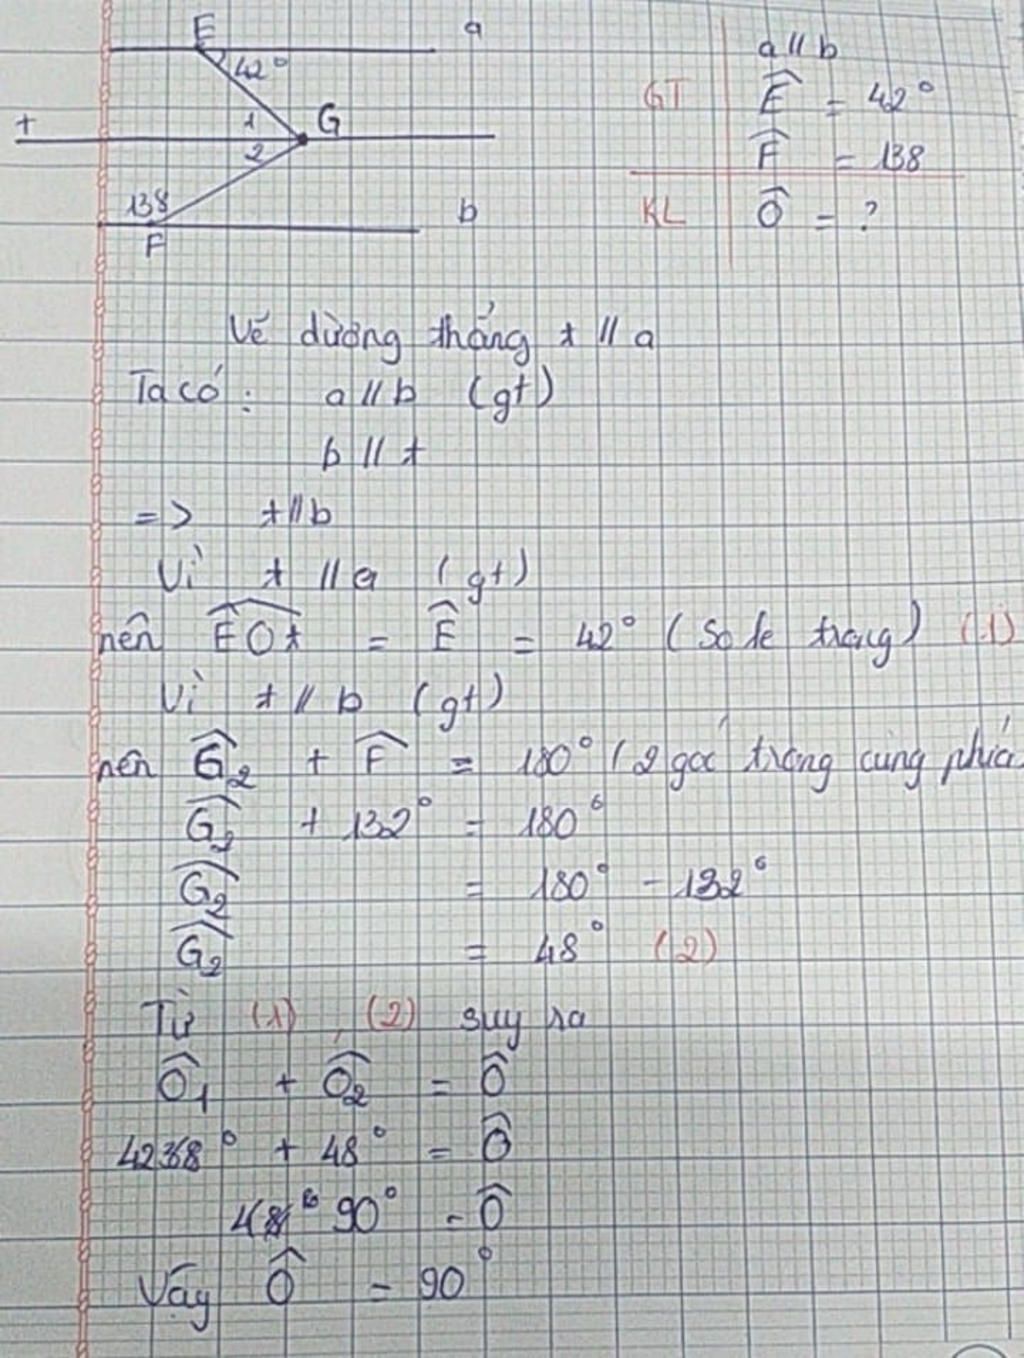 E
a
42°
t
1
G
2
138
b
F
a // b
GT Ê = 42°
F̂ = 138
KL Ô = ?
Vẽ dường thẳng t // a
Ta có: a // b (gt)
b // t
=> t // b
Vì t // a (gt)
nên EOt = Ê = 42° (So le trong) (1)
Vì t // b (gt)
nên Ĝ₂ + F̂ = 180° (2 góc trong cùng phía
Ĝ₂ + 132° = 180°
Ĝ₂ = 180° - 132°
Ĝ₂ = 48° (2)
Từ (1), (2) suy ra
Ô₁ + Ô₂ = Ô
42° + 48° = Ô
90° = Ô
Vậy Ô = 90°